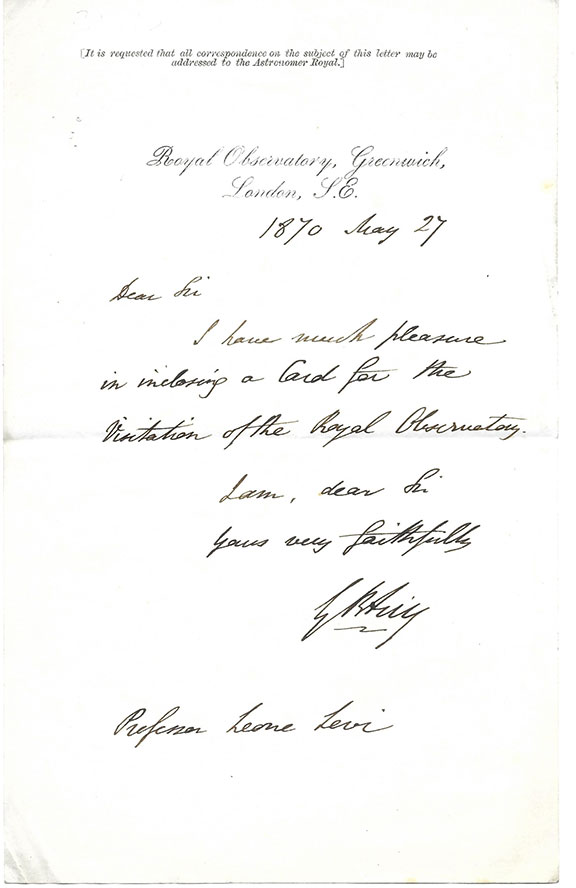 [It is requested that all correspondence on the subject of this letter may be
addressed to the Astronomer Royal.]
Royal Observatory, Greenwich,
London, S.E.
1870 May 27
Dear Sir
I have much pleasure
in inclosing a Card for the
Visitation of the Royal Observatory.
I am, dear Sir
Yours very faithfully
G B Airy
Professor Leone Levi